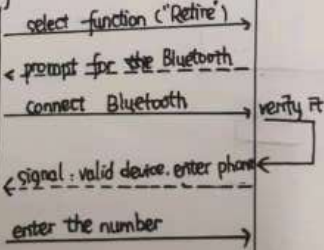 select function ("Retire")
prompt for the Bluetooth
connect Bluetooth
verify it
signal : valid device. enter phone
enter the number